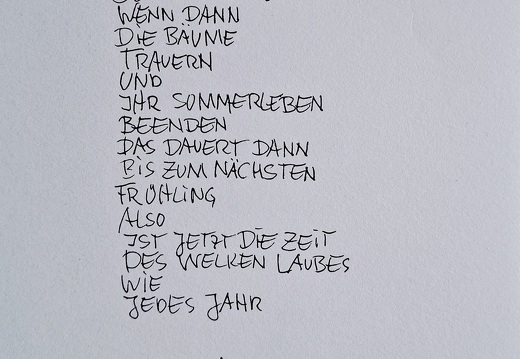 WENN DANN
DIE BÄUME
TRAUERN
UND
IHR SOMMERLEBEN
BEENDEN
DAS DAUERT DANN
BIS ZUM NÄCHSTEN
FRÜHLING
ALSO
IST JETZT DIE ZEIT
DES WELKEN LAUBES
WIE
JEDES JAHR